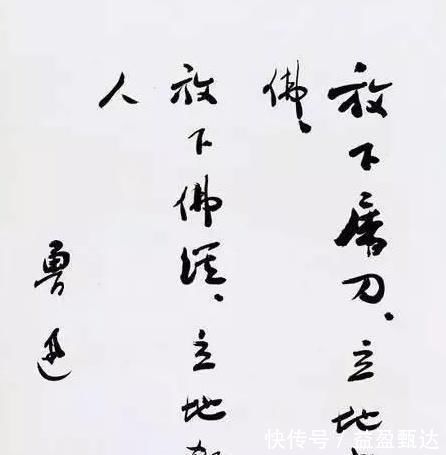 放下屠刀、立地
佛、
放下佛经、立地
人
鲁迅
快传号 / 益盈甄达